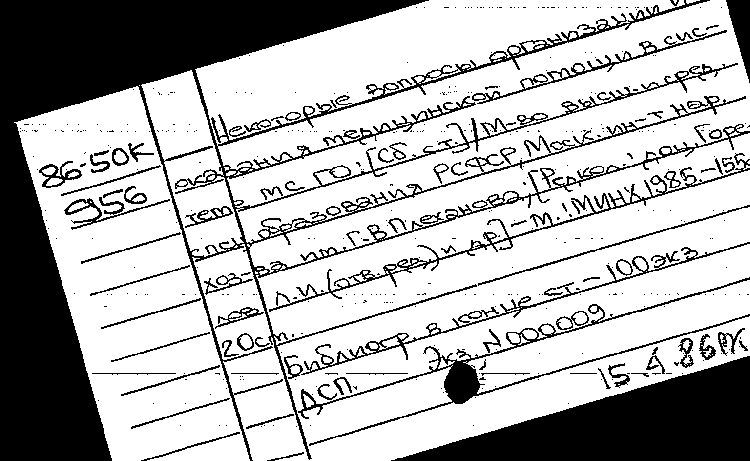 Некоторые вопросы организации и
86-50К
оказания медицинской помощи в сис-
956
теме МС ГО: [Сб. ст.] / М-во высш. и сред.
спец. образования РСФСР, Моск. ин-т нар.
хоз-ва им. Г.В. Плеханова; [Редкол.: доц. Горе-
лов Л.И. (отв. ред.) и др.] – М.: МИНХ, 1985. – 155
20 см.
Библиогр. в конце ст. – 100 экз.
ДСП. Экз. N 000009.
15.4.86